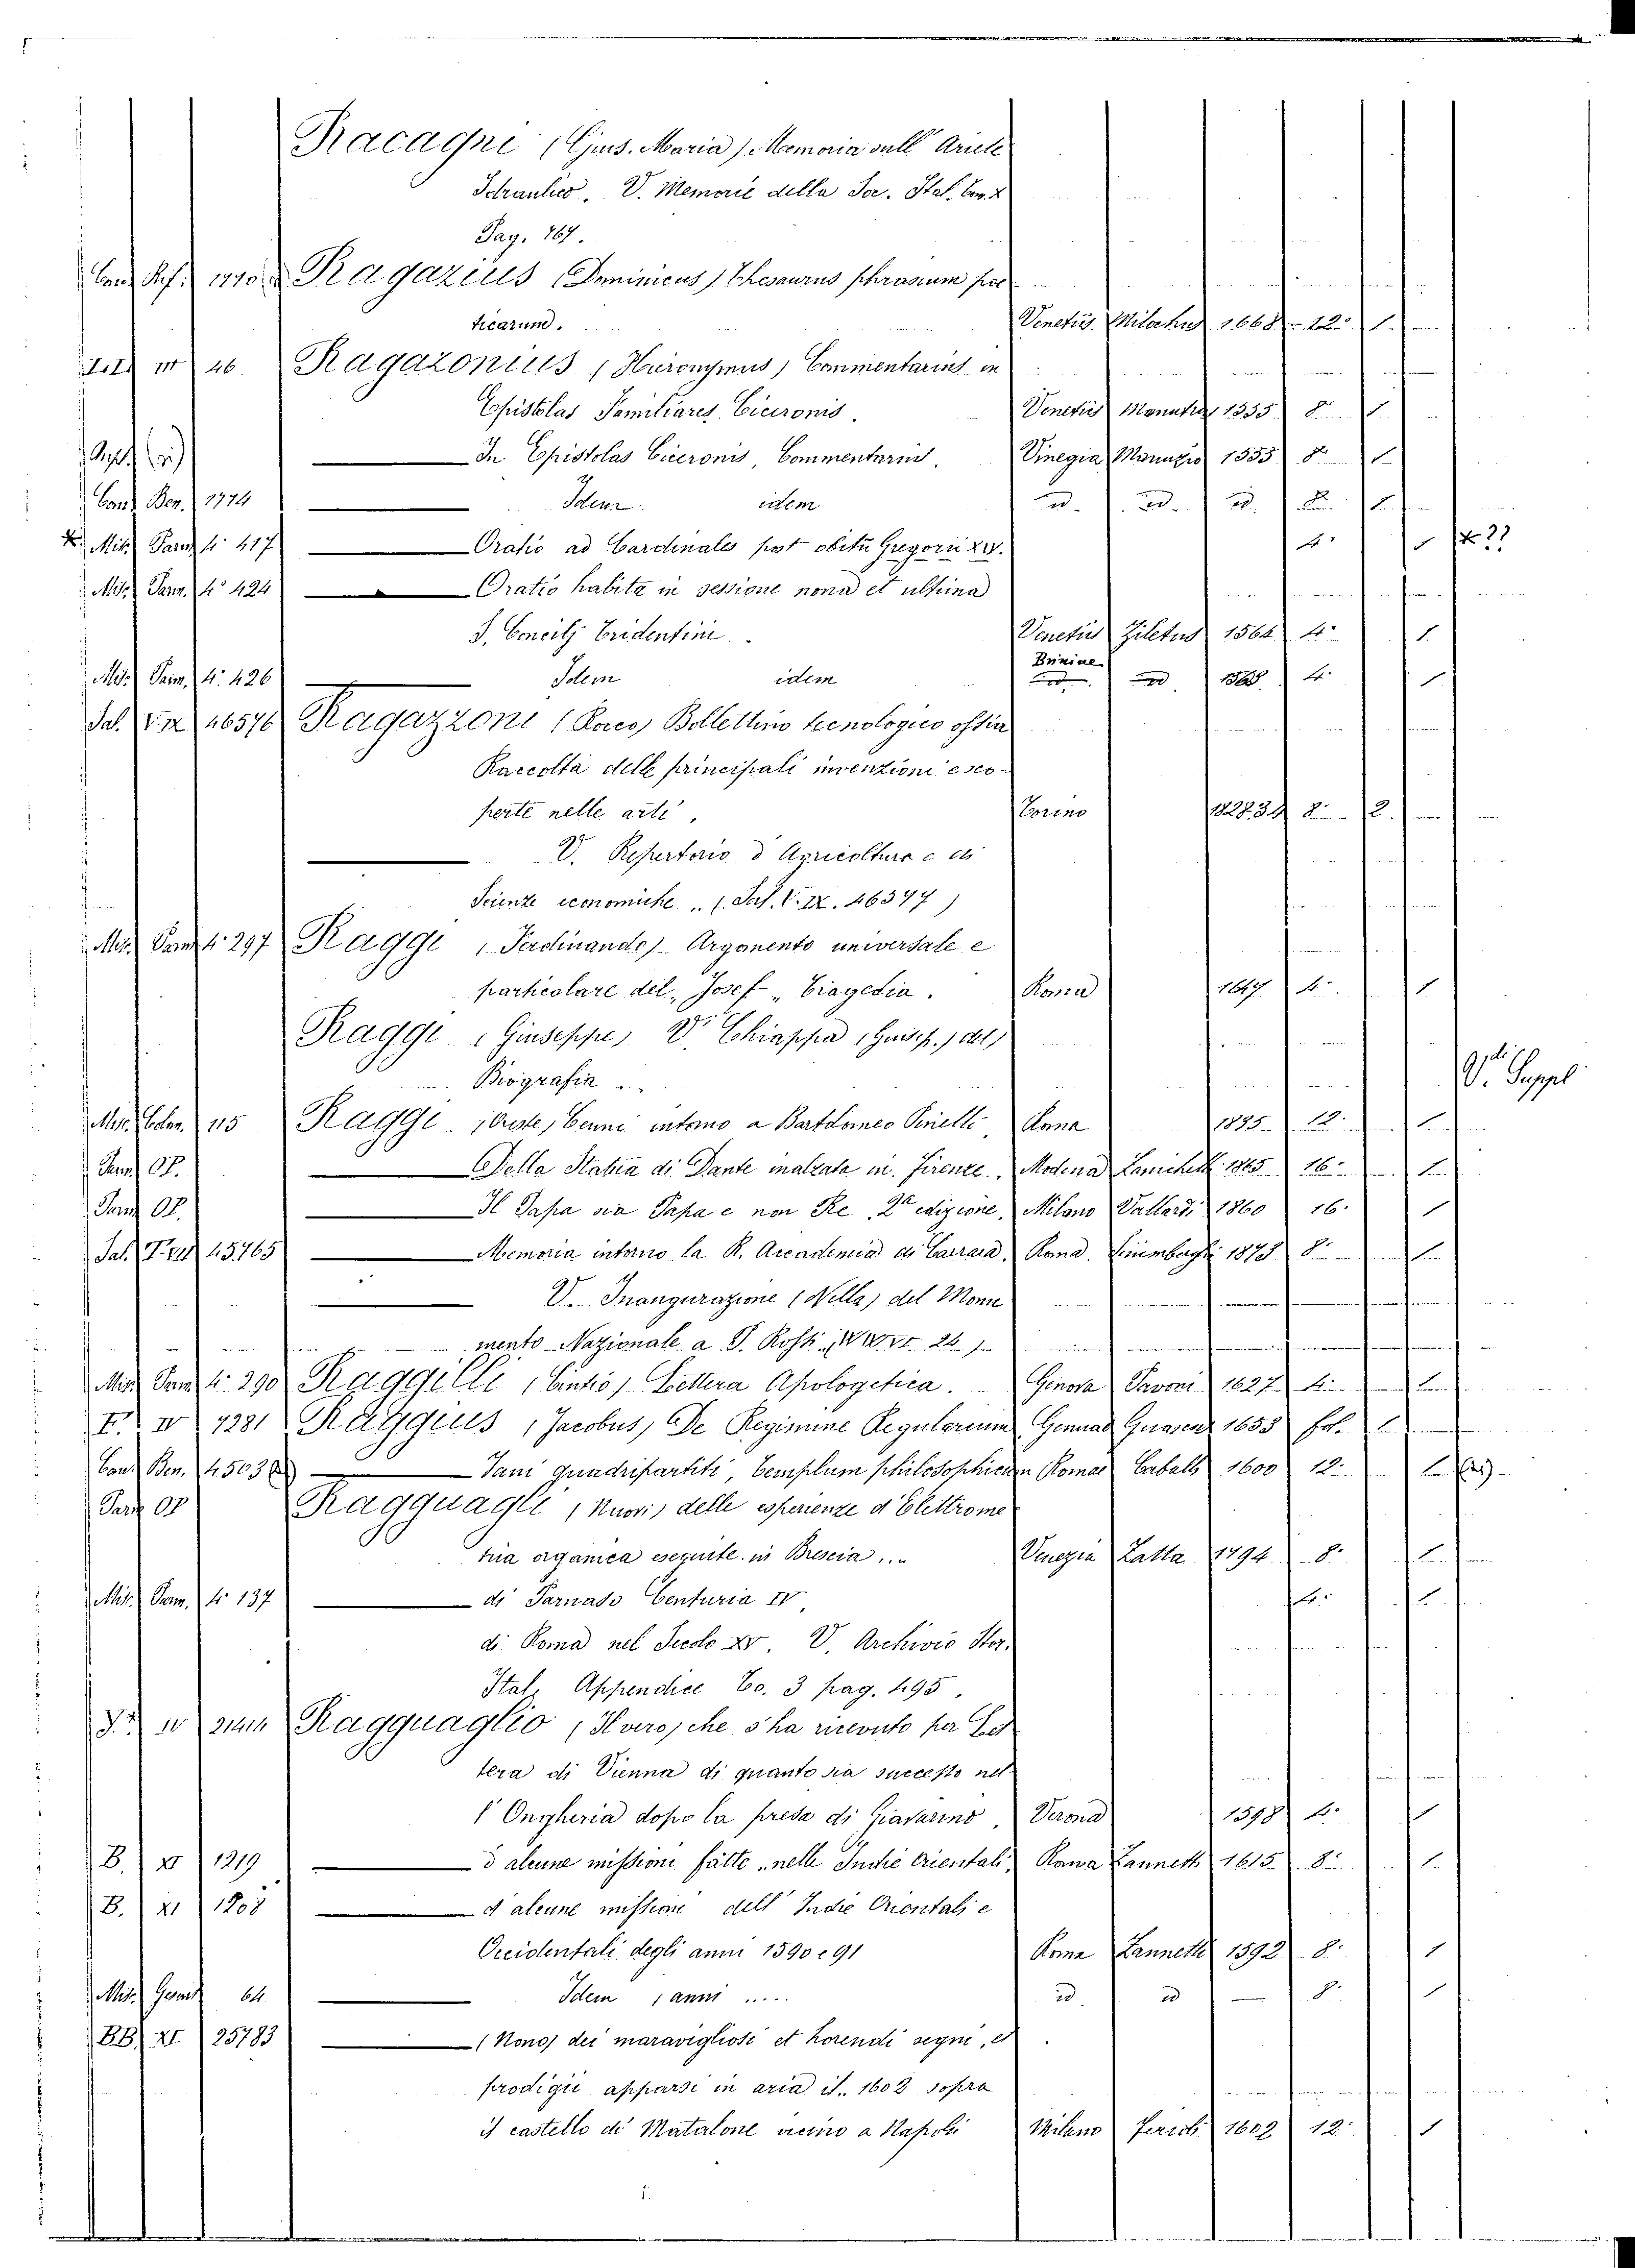 Racagni (Gius. Maria) Memoria sull' Ariete
Idraulico. V. Memorie della Soc. Ital.
Pag. 767.
1770 Ragazius (Dominicus) Thesaurus phrasium poe
ticarum. Venetiis Milochus 1668 12° 1
46 Ragazonius (Hieronymus) Commentarius in
Epistolas Familiares Ciceronis. Venetiis 1555 8° 1
In Epistolas Ciceronis, Commentarius. Vinegia Manuzio 1555 8° 1
Ben. 1774 Idem idem id. id. id. 8. 1
Mis. Parm. 4° 417 Oratio ad Cardinales post obitu Gregorii XIV. 4° 1
Mis. Parm. 4° 424 Oratio habita in sessione nona et ultima
S. Concilj Tridentini Venetiis Ziletus 1564 4° 1
Mis. Parm. 4° 426 Idem idem Brixiae id 4° 1
Sal. 46576 Ragazzoni (Rocco) Bollettino tecnologico ossia
Raccolta delle principali invenzioni e sco-
perte nelle arti. Torino 1828.34 8° 2
V. Repertorio d'Agricoltura e di
Scienze economiche (Sal. 46377)
Mis. Parm. 4° 297 Raggi (Ferdinando) Argomento universale e
particolare del "Josef" Tragedia. Roma 1647 4° 1
Raggi (Giuseppe) V. Chiappa (Gius.) del)
Biografia V. Suppl
115 Raggi (Oreste) Cenni intorno a Bartolomeo Pinelli, Roma 1835 12. 1
Parm. OP. Della Statua di Dante inalzata in Firenze. Modena 1865 16° 1
Parm. OP. Il Papa sia Papa e non Re. 2ª edizione. Milano Vallardi 1860 16. 1
Sal. 45765 Memoria intorno la R. Accademia di Carrara. Roma 1873 8° 1
V. Inaugurazione (Nella) del Monu
mento Nazionale a P. Rossi
Mis. Parm. 4° 290 Raggilli (Cintio) Lettera Apologetica. Genova Pavoni 1627 4° 1
F. IV 7281 Raggius (Jacobus) De Regimine Regularium Genuae 1653 fol. 1
Ben. 4503 Jani quadripartiti, Templum philosophicum Romae 1600 12° 1
Parm. OP Ragguagli (Nuovi) delle esperienze d'Elettrome
tria organica eseguite in Brescia... Venezia Zatta 1794 8° 1
Mis. Parm. 4° 137 di Parnaso Centuria IV 4° 1
di Roma nel Secolo XV. V. Archivio Stor.
Ital. Appendice To. 3 pag. 495.
Ragguaglio (Il vero) che s'ha ricevuto per Let
tera di Vienna di quanto sia successo nel
l'Ongheria dopo la presa di Giavarino. Verona 1598 4° 1
B. XI 1219 d'alcune missioni fatte nelle Indie Orientali. Roma Zannetti 1615 8° 1
B. XI d'alcune missioni dell'Indie Orientali e
Occidentali degli anni 1590 e 91 Roma Zannetti 1592 8° 1
Mis. Gesuit. 64 Idem (anni ..... id id — 8° 1
BB. XI 25783 (Nono) dei maravigliosi et horendi segni, et
prodigii apparsi in aria il 1602 sopra
il castello di Matalone vicino a Napoli Milano 1602 12° 1